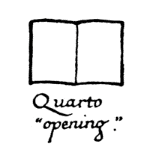 Quarto
"opening."